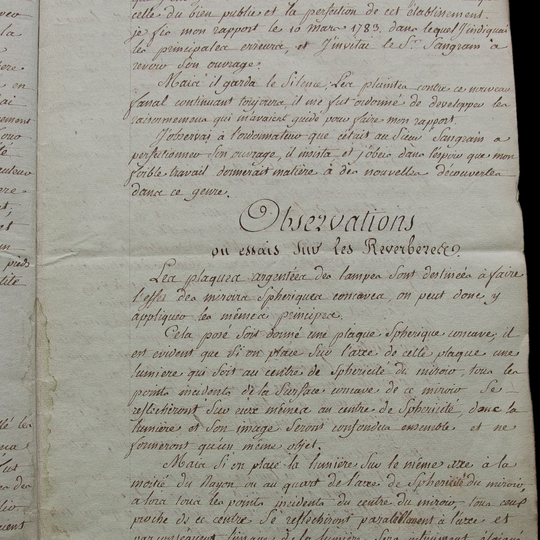 celle du bien publie et la perfection de cet établissement.
je fis mon rapport le 10 mars 1783. dans lequel J'indiquai
les principales erreurs, et J'invitai le Sr. Sangrain a
revoir Son ouvrage.
Mais il garda le Silence. Les plaintes contre ce nouveau
fanal continuant toujours, il me fut ordonné de developper les
raisonnemens qui m'avaient guidé pour faire mon rapport.
J'observai a l'ordonnateur que c'étoit au Sieur Sangrain a
perfectionner Son ouvrage, il insista et j'obeis dans l'espoir que mon
foible travail donnerait matière à des nouvelles découvertes
dans ce genre.
Observations
ou essais sur les Reverberes.
Les plaques argentées des lampes sont destinées à faire
l'effet des miroirs Spheriques concaves, on peut donc y
appliquer les mêmes principes.
Cela posé soit donné une plaque Spherique concave, il
est evident que si on place sur l'axe de cette plaque une
lumiere qui soit au centre de Sphericité du miroir tous les
points incidents de la Surface concave de ce miroir Se
reflechiront Sur eux mêmes au centre de Sphericité donc la
lumière et Son image Seront confondus ensemble et ne
formeront qu'un même objet.
Mais Si on place la lumière Sur le même axe à la
moitié du Rayon ou au quart de l'axe de Sphericité du miroir,
alors tous les points incidents du centre du miroir, tous ceux
proche de ce centre Se reflechiront parallellement à l'axe et
par consequent l'image de la lumière sera infiniment éloignée